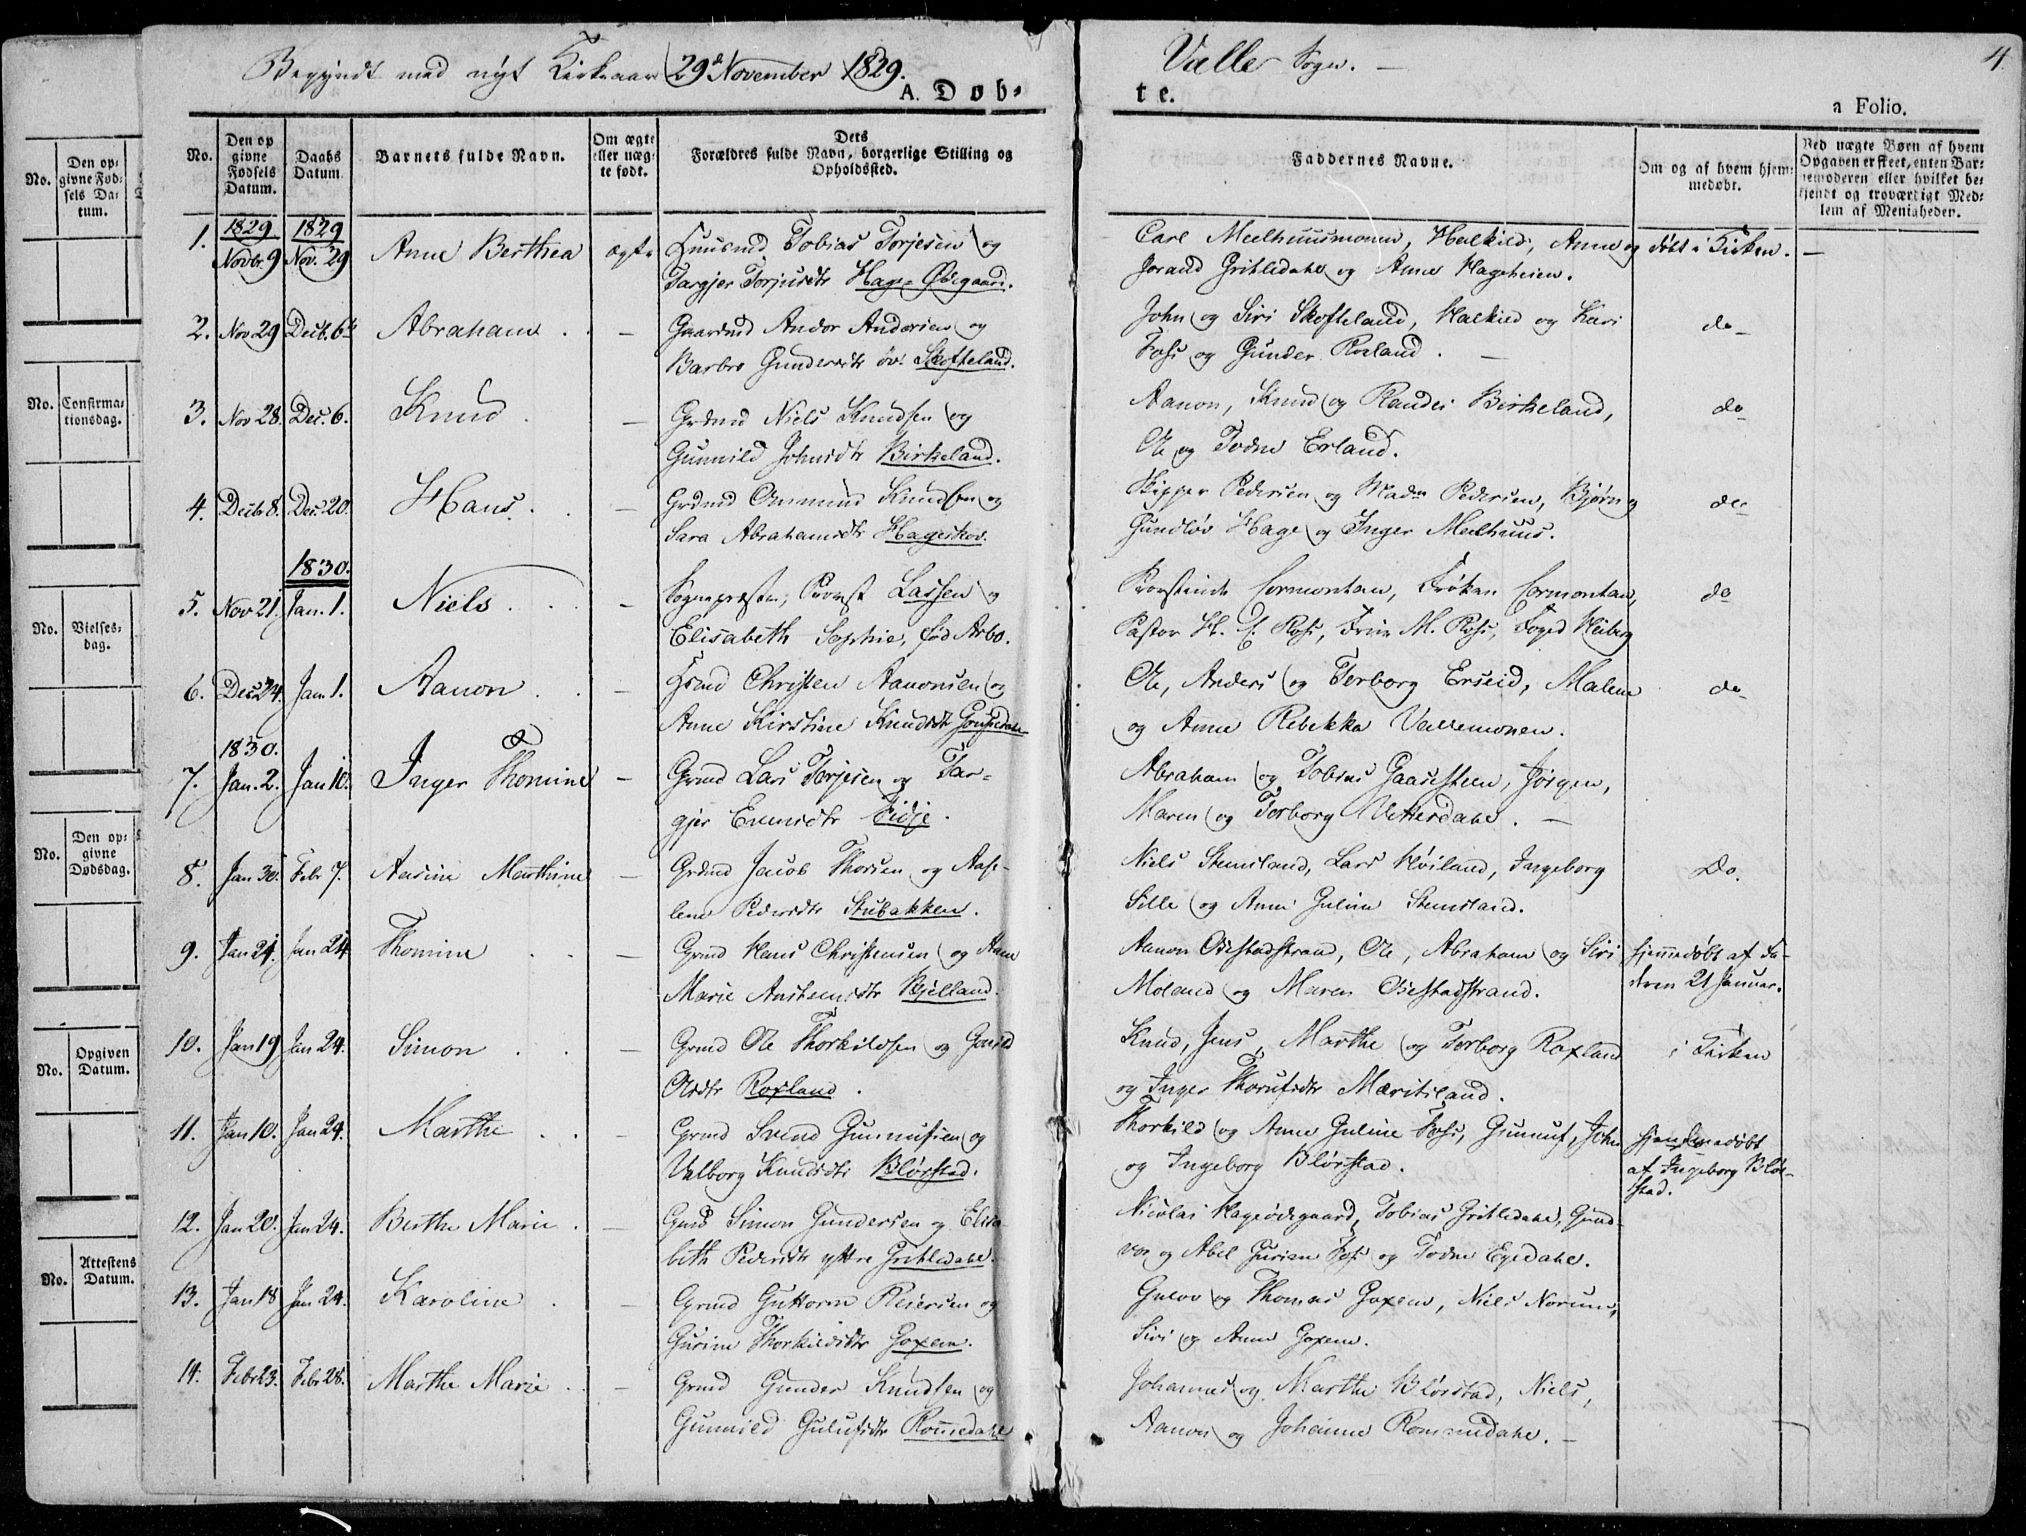 Begyndt med nyt Kirkeaar 29de November 1829.
Valle Sogn. –
4.
A. Døb-
te.
a Folio.
No.
Den op-
givne Fød-
sels Da-
tum.
No.
Confirma-
tionsdag.
No.
Vielses-
dag.
No.
Den op-
givne
Dødsdag.
No.
Opgiven
Datum.
No.
Attestens
Datum.
No.
Den op
givne
Fødsels
Datum.
Daabs
Datum
Barnets fulde Navn.
Om ægte
eller uæg-
te født.
Dets
Forældres fulde Navn, borgerlige Stilling og
Opholdssted.
Faddernes Navne.
Om og af hvem hjem-
medøbt.
Ved uægte Børn af hvem
Opgaven er skeet, enten Bar-
nemoderen eller hvilket be-
kjendt og troværdigt Med-
lem af Menigheden.
1. 1829 Novbr. 9 1829 Nov. 29 Anne Berthea ægte Huusmd Tobias Torjesen og
Targjer Torjusdtr Hage-Ødegaard.
Carl Meelhuusmoenen, Halkild, Anne og
Jorand Gritledahl og Anne Hageheien.
døbt i Kirken. –
2. Nov 29 Decb. 6te Abraham – Gaardmd Andor Andersen og
Barbro Gundersdtr øv. Skofteland.
John og Siri Skofteland, Halkild og Kari
Foss og Gunder Rosland. –
do–
3. Nov 28. Dec. 6. Knud – Grdmd Niels Knudsen og
Gunnild Johnsdtr Birkeland.
Aanon, Knud og Randei Birkeland,
Ole og Todne Erland.
do–
4. Decbr 8. Dec. 20. Hans – Grdmd Ommund Knudsen og
Sara Abrahamsdtr Hageskov.
Skipper Pedersen og Madm Pedersen, Bjørn og
Gundløv Hage og Inger Meelhuus.
do–
1830.
5. Nov 21. Jan. 1. Niels – Sognepræsten, Provst Lassen og
Elisabeth Sophie, fød Arbo.
Provstinde Cormontan, Frøken Cormontan,
Pastor H. C. Ross, Frue M. Ross, Foged Heiberg
do
6. Dec 24. Jan 1. Aanon – Hsmd Christen Aanonsen og
Anne Kirstine Knudsdtr
Ole, Anders og Torborg Erseid, Malene
og Anne Rebekka Vallemonen.
do–
1830.
7. Jan. 2. Jan 10. Inger Thomine – Grmd Lars Torjesen og Tar-
gjer Evensdtr Eidje.
Abraham og Tobias Gaasesteen, Jørgen,
Maren og Torborg Vetterdahl. –
8. Jan 30. Febr 7. Aasine Marthine – Grdmd Jacob Thorsen og Aase-
lene Pedersdtr Stubakken.
Niels Stensland, Lars Høiland, Ingeborg
Sille og Anne Guline Stensland.
Do.
9. Jan 21. Jan 24 Thomine – Grmd Hans Christensen og Anne
Marie Austeensdtr Kjelland.
Aanon Obestadstrand, Ole, Abraham og Siri
Moland og Maren Obestadstrand.
hjemmedøbt af Fa-
deren 21 Januar.
10. Jan 19 Jan 24. Simon – Grmd Ole Thorkildsen og Gonild
Olsdtr Roxland.
Knud, Jens, Marthe og Torborg Roxland
og Inger Thorufsdtr Mæritsland.
i Kirken
11. Jan 10. Jan 24. Marthe – Grmd Svend Gunnufsen og
Valborg Knudsdtr Blørstad.
Thorkild og Anne Guline Foss, Gunnuf, John
og Ingeborg Blørstad.
hjemmedøbt
af Ingeborg Blør-
stad.
12. Jan 20. Jan 24. Berthe Marie – Grmd Simon Gundersen og Elisa-
beth Pedersdtr yttre Gritledahl.
Nicolai Hageødegaard, Tobias Gritledahl, Gund-
vor og Abel Gurine Foss og Todne Egedahl.
13. Jan 18 Jan 24. Karoline – Grmd Guttorm Reiersen og
Gurine Thorkildsdtr Goxem.
Gulov og Thomas Goxem, Niels Norum,
Siri og Anne Goxem.
14. Febr 23. Febr 28. Marthe Marie – Grmd Gunder Knudsen og
Gunnild Gulufsdtr Romedahl
Johannes og Marthe Blørstad, Niels,
Aanon og Johanne Rommedahl. –